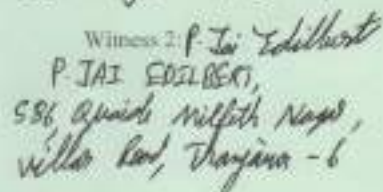 Witness 2: P. Jai Edilbert
P. JAI EDILBERT,
586, Quaide Milleth Nagar,
Villar Road, Thanjavur - 6